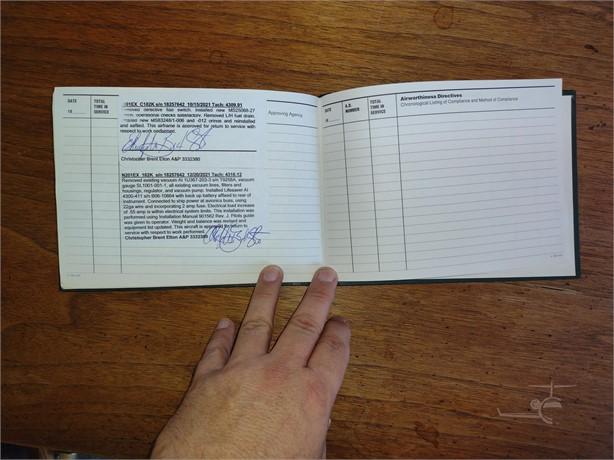 DATE
TOTAL TIME IN SERVICE
19
N201EX C182K s/n 18257642 10/15/2021 Tach: 4309.91
Removed defective flap switch. Installed new MS25068-27
operational checks satisfactory. Removed L/H fuel drain.
new MS83248/1-006 and -012 orings and reinstalled
and saftied. This airframe is approved for return to service with
respect to work performed.
Christopher Brent Elton A&P 3332380
N201EX, 182K s/n 18257642 12/20/2021 Tach: 4316.12
Removed existing vacuum AI
gauge SL1001-001, all existing vacuum lines, filters and
housings, regulator, and vacuum pump. Installed Lifesaver AI
4300-411 s/n with back up battery affixed to rear of
instrument. Connected to ship power at avionics buss, using
22ga wire and incorporating 2 amp fuse. Electrical load increase
of .55 amp is within electrical system limits. This installation was
performed using Installation Manual 901562 Rev. J. Pilots guide
was given to operator. Weight and balance was revised and
equipment list updated. This aircraft is approved for return to
service with respect to work performed.
Christopher Brent Elton A&P 3332380
Approving Agency
DATE
19
A.D. NUMBER
TOTAL TIME IN SERVICE
Airworthiness Directives
Chronological Listing of Compliance and Method of Compliance